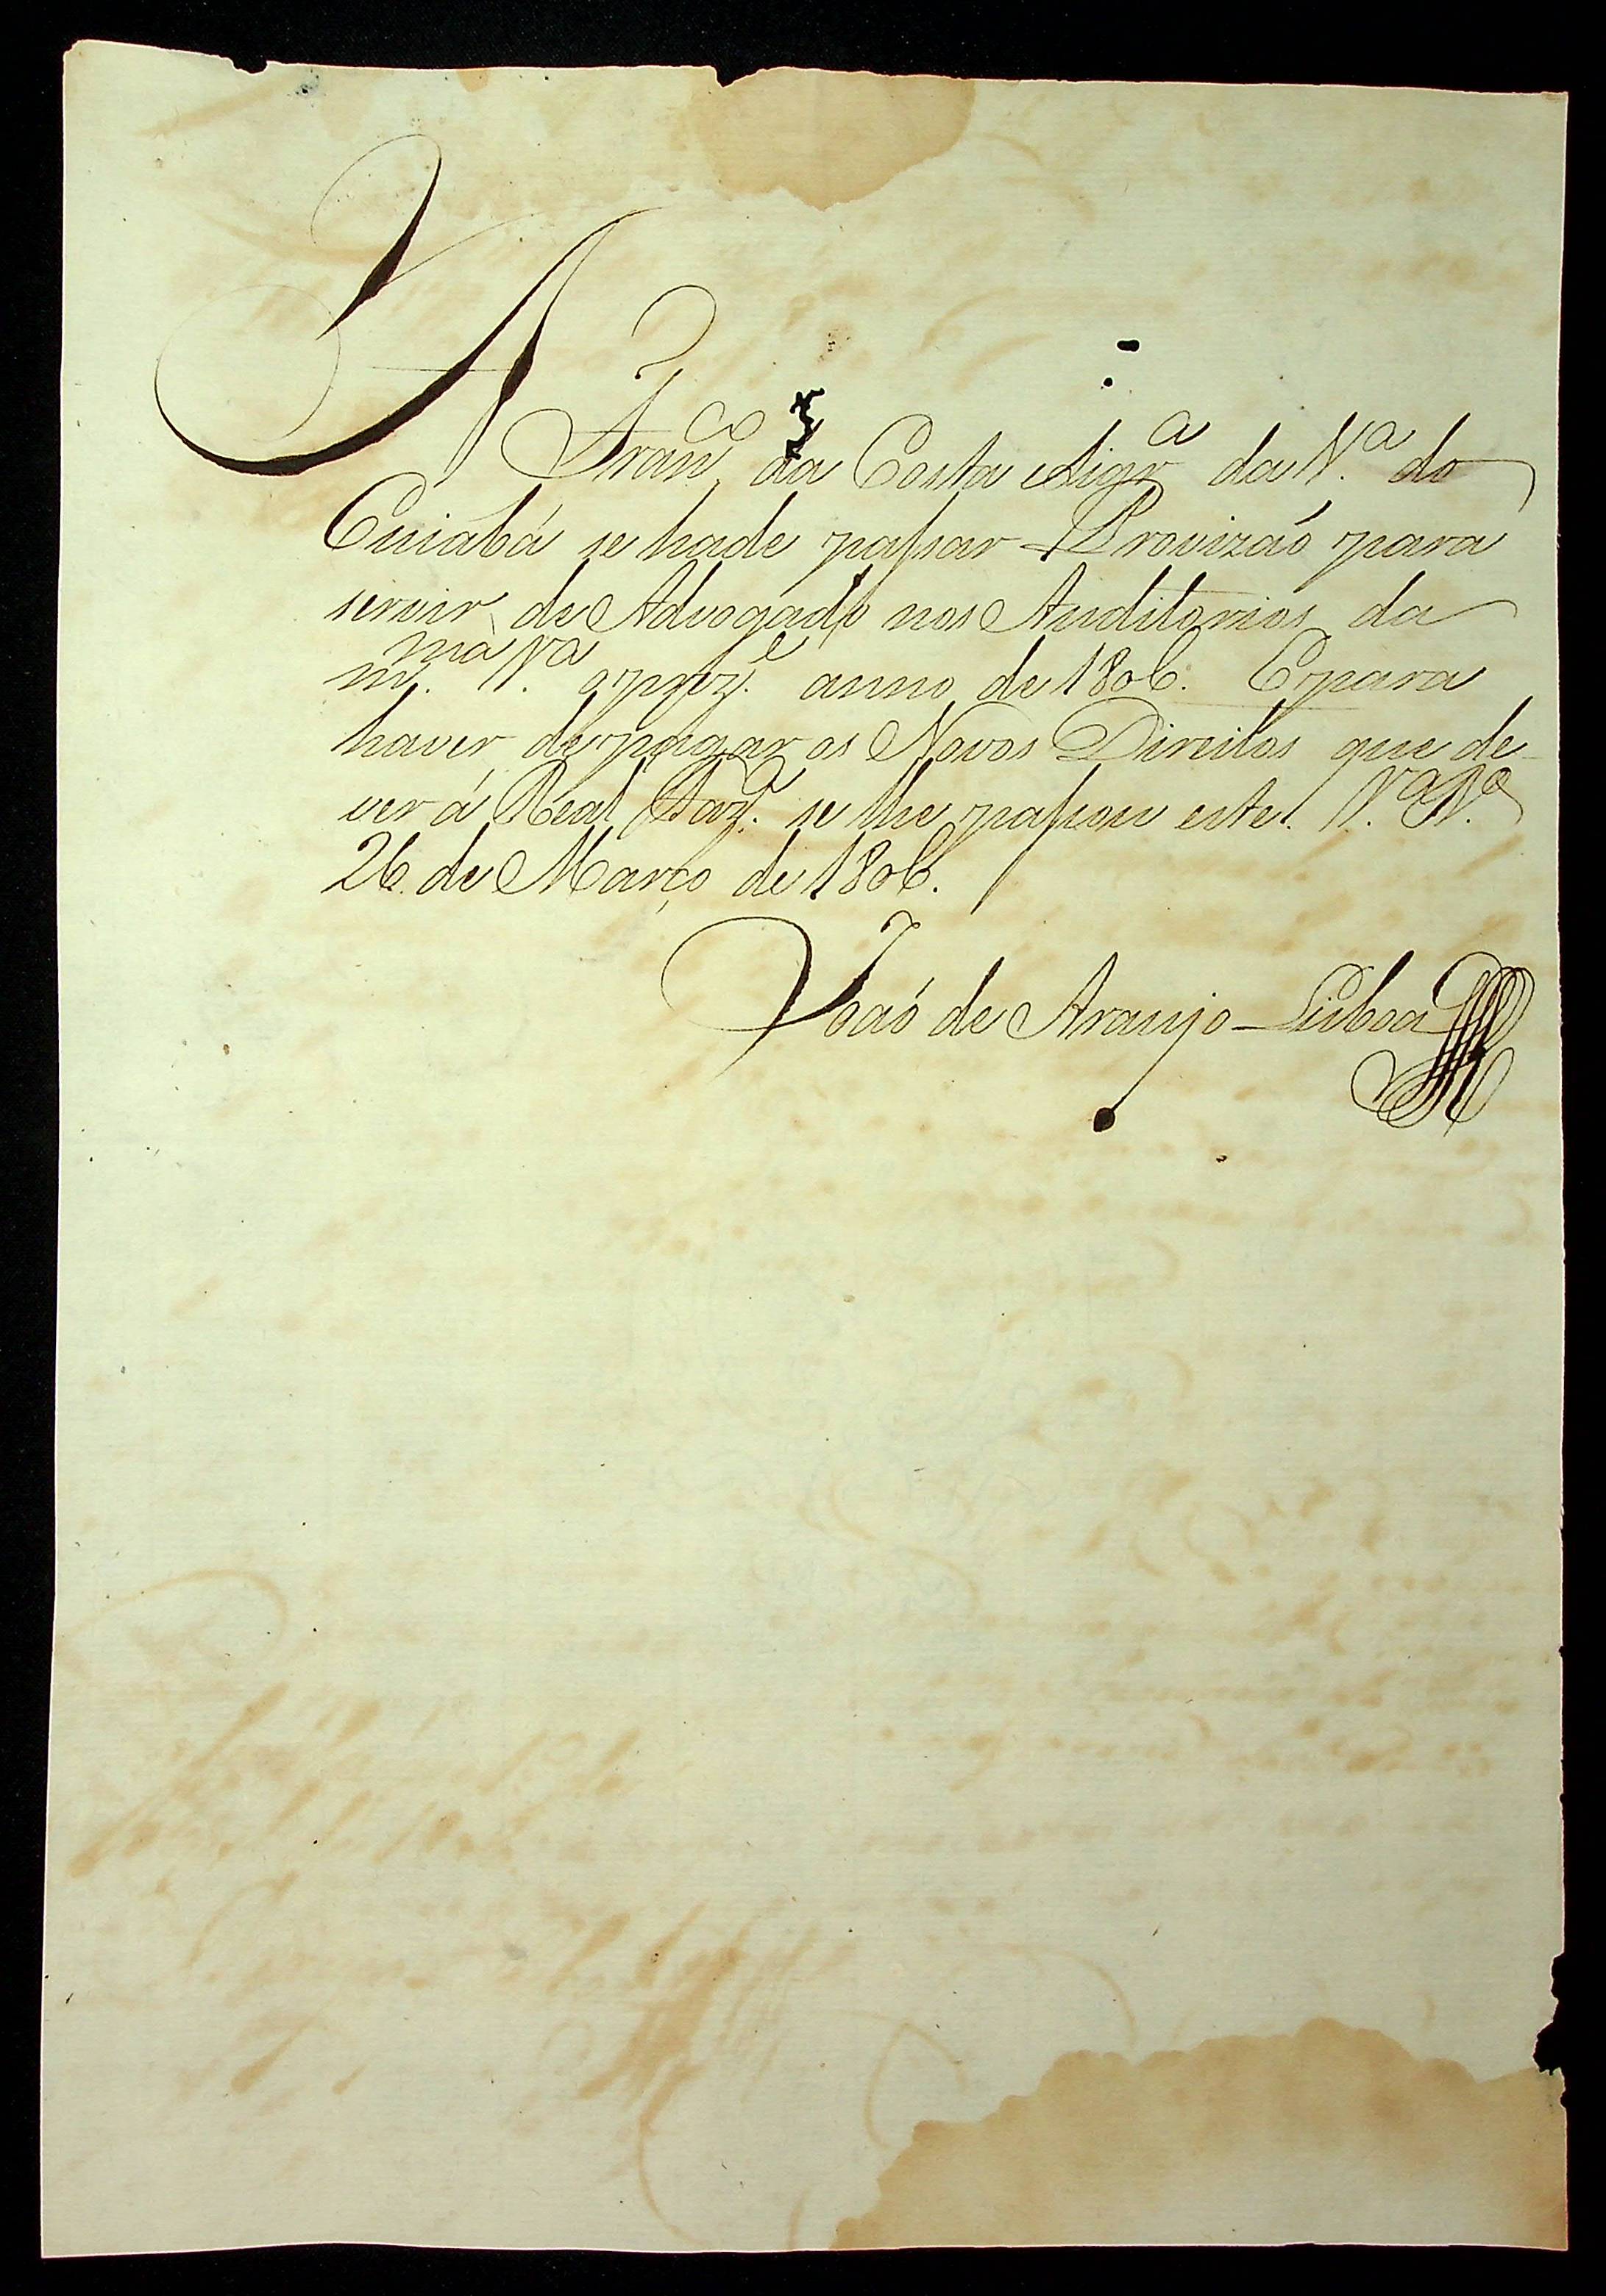 A Fran.co da Costa Siqr.a da V.a do
Cuiabá se hade passar Provizaõ para
servir de Advogado nos Auditorios da
m.ma V.a o prez.e anno de 1806. E para
haver de pagar os Novos Direitos que de-
ver á Real Faz.a se lhe passou este. V.a B.a
26. de Março de 1806.
Joaõ de Araujo Lisboa